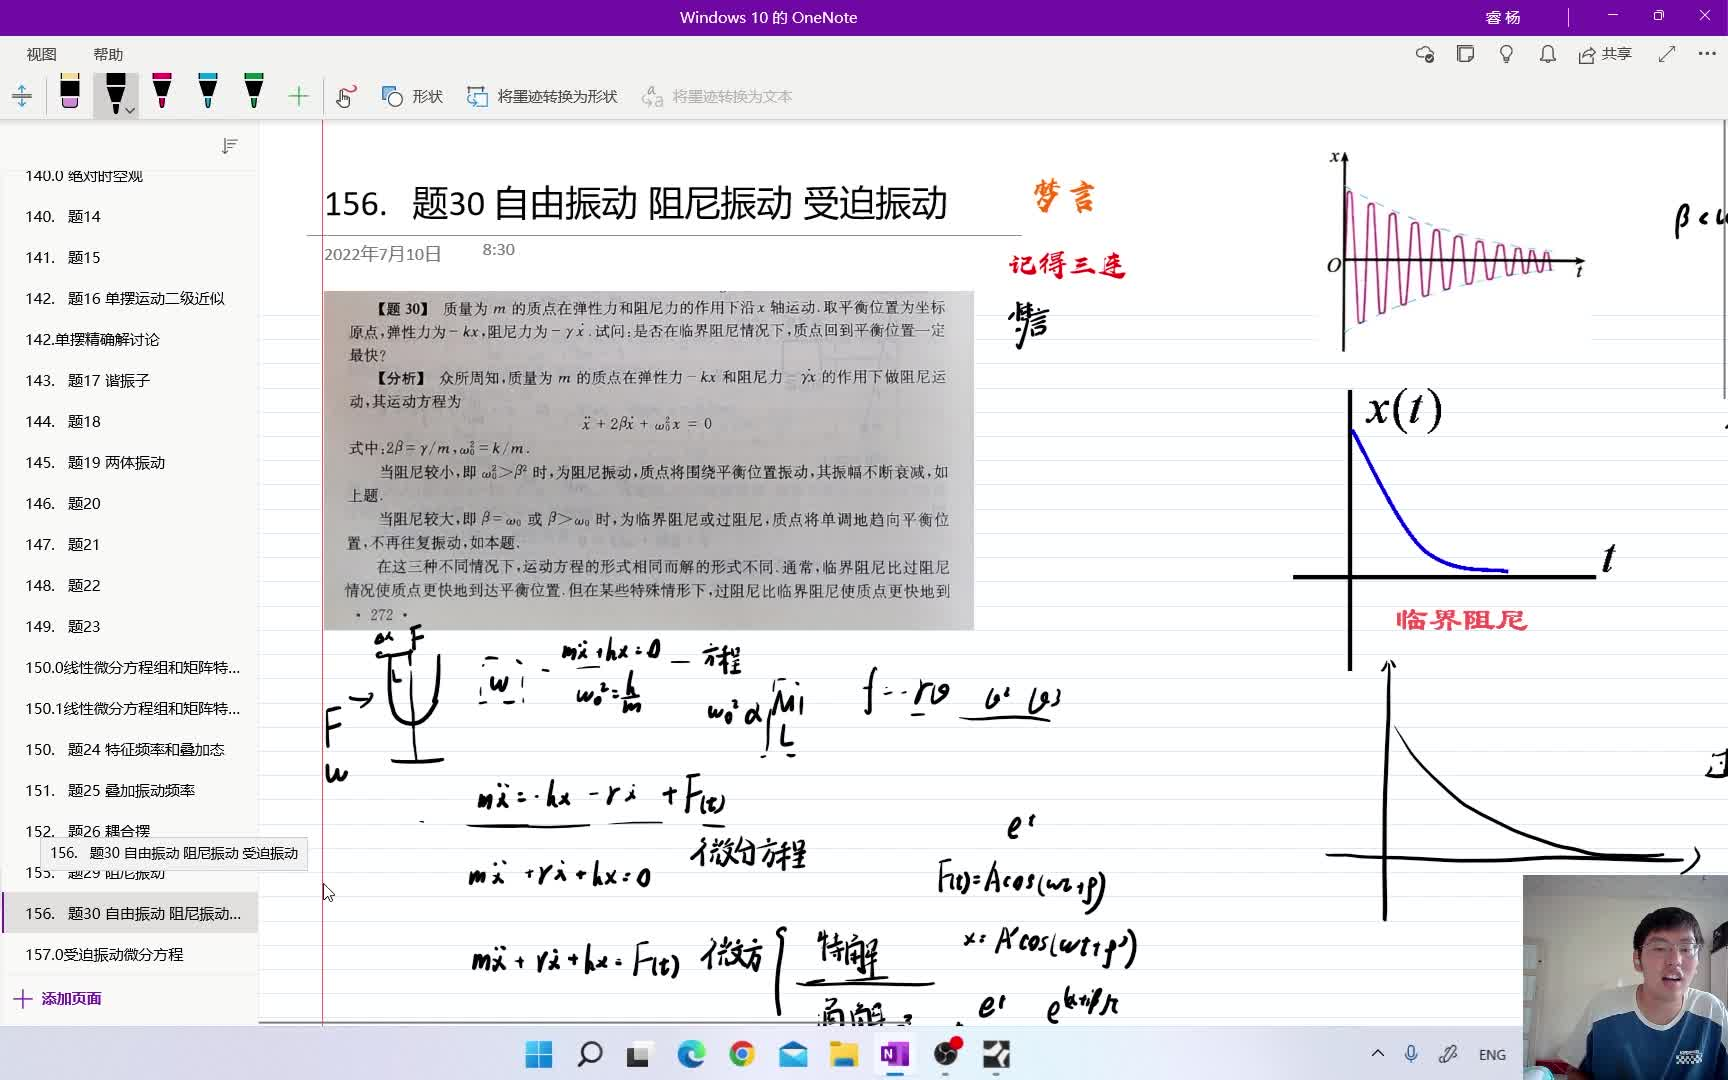 Windows 10 的 OneNote
睿 杨
视图 帮助
共享
形状 将墨迹转换为形状 将墨迹转换为文本
140.0 绝对时空观
140. 题14
141. 题15
142. 题16 单摆运动二级近似
142.单摆精确解讨论
143. 题17 谐振子
144. 题18
145. 题19 两体振动
146. 题20
147. 题21
148. 题22
149. 题23
150.0线性微分方程组和矩阵特...
150.1线性微分方程组和矩阵特...
150. 题24 特征频率和叠加态
151. 题25 叠加振动频率
152. 题26 耦合摆
156. 题30 自由振动 阻尼振动 受迫振动
155. 题29 阻尼振动
156. 题30 自由振动 阻尼振动...
157.0受迫振动微分方程
添加页面
156. 题30 自由振动 阻尼振动 受迫振动
2022年7月10日 8:30
梦言
记得三连
【题 30】 质量为 m 的质点在弹性力和阻尼力的作用下沿 x 轴运动.取平衡位置为坐标
原点,弹性力为 − kx,阻尼力为 − γẋ.试问:是否在临界阻尼情况下,质点回到平衡位置一定
最快?
【分析】 众所周知,质量为 m 的质点在弹性力 − kx 和阻尼力 − γẋ 的作用下做阻尼运
动,其运动方程为
ẍ + 2βẋ + ω₀²x = 0
式中:2β = γ/m,ω₀² = k/m.
当阻尼较小,即 ω₀² > β² 时,为阻尼振动,质点将围绕平衡位置振动,其振幅不断衰减,如
上题.
当阻尼较大,即 β = ω₀ 或 β > ω₀ 时,为临界阻尼或过阻尼,质点将单调地趋向平衡位
置,不再往复振动,如本题.
在这三种不同情况下,运动方程的形式相同而解的形式不同.通常,临界阻尼比过阻尼
情况使质点更快地到达平衡位置.但在某些特殊情形下,过阻尼比临界阻尼使质点更快地到
· 272 ·
x
O
t
x(t)
t
临界阻尼
F
L
F
w
w
mẍ + kx = 0 — 方程
ω₀² = k/m
mẍ = -kx - rẋ + F(t)
微分方程
mẍ + rẋ + kx = 0
eᵗ
F(t) = A cos(ωt+φ)
mẍ + rẋ + kx = F(t) 微方
特解
x = A' cos(ωt+φ')
通解
eᵗ
ENG